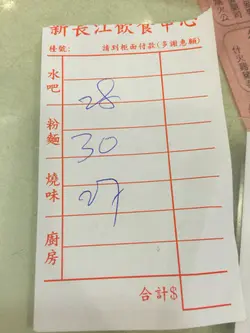 新長江飲食中心
枱號: 請到柜面付款(多謝惠顧)
水吧 28
粉麵 30
燒味 27
廚房
合計$